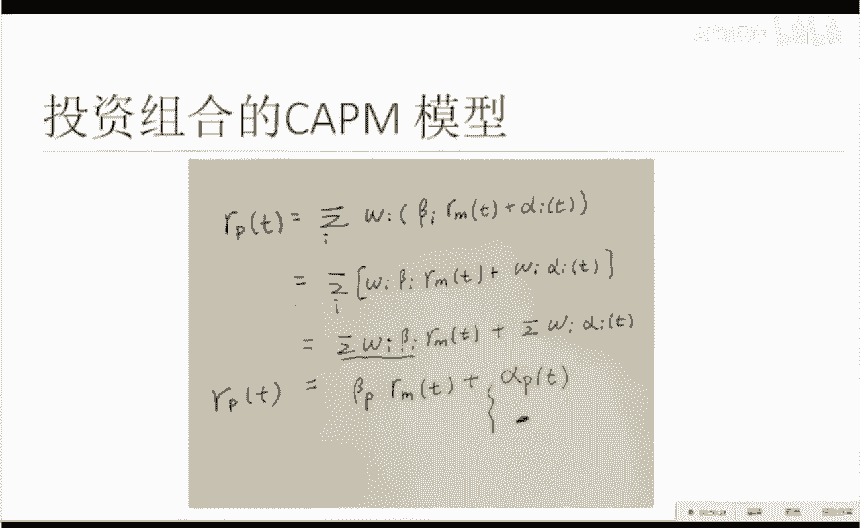 投资组合的CAPM 模型
rₚ(t) = Σᵢ wᵢ ( βᵢ rₘ(t) + αᵢ(t) )
= Σᵢ [ wᵢ βᵢ rₘ(t) + wᵢ αᵢ(t) ]
= Σ wᵢ βᵢ rₘ(t) + Σ wᵢ αᵢ(t)
rₚ(t) = βₚ rₘ(t) + { αₚ(t)